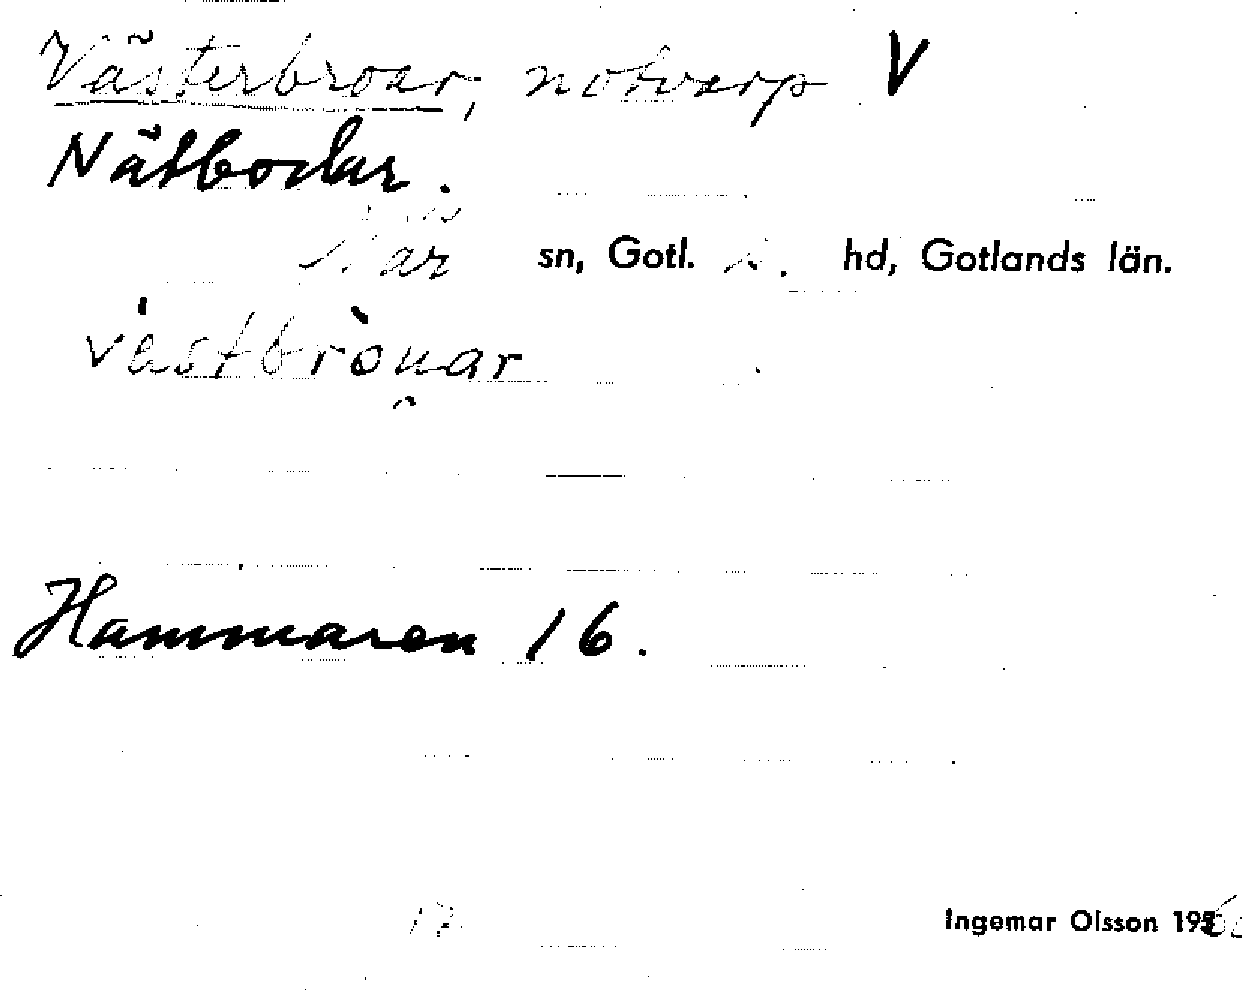 Västerbroar, notvarp V
Nätbodar.
När sn, Gotl. S. hd, Gotlands län.
västbròuar
Hammaren 16.
17
Ingemar Olsson 19